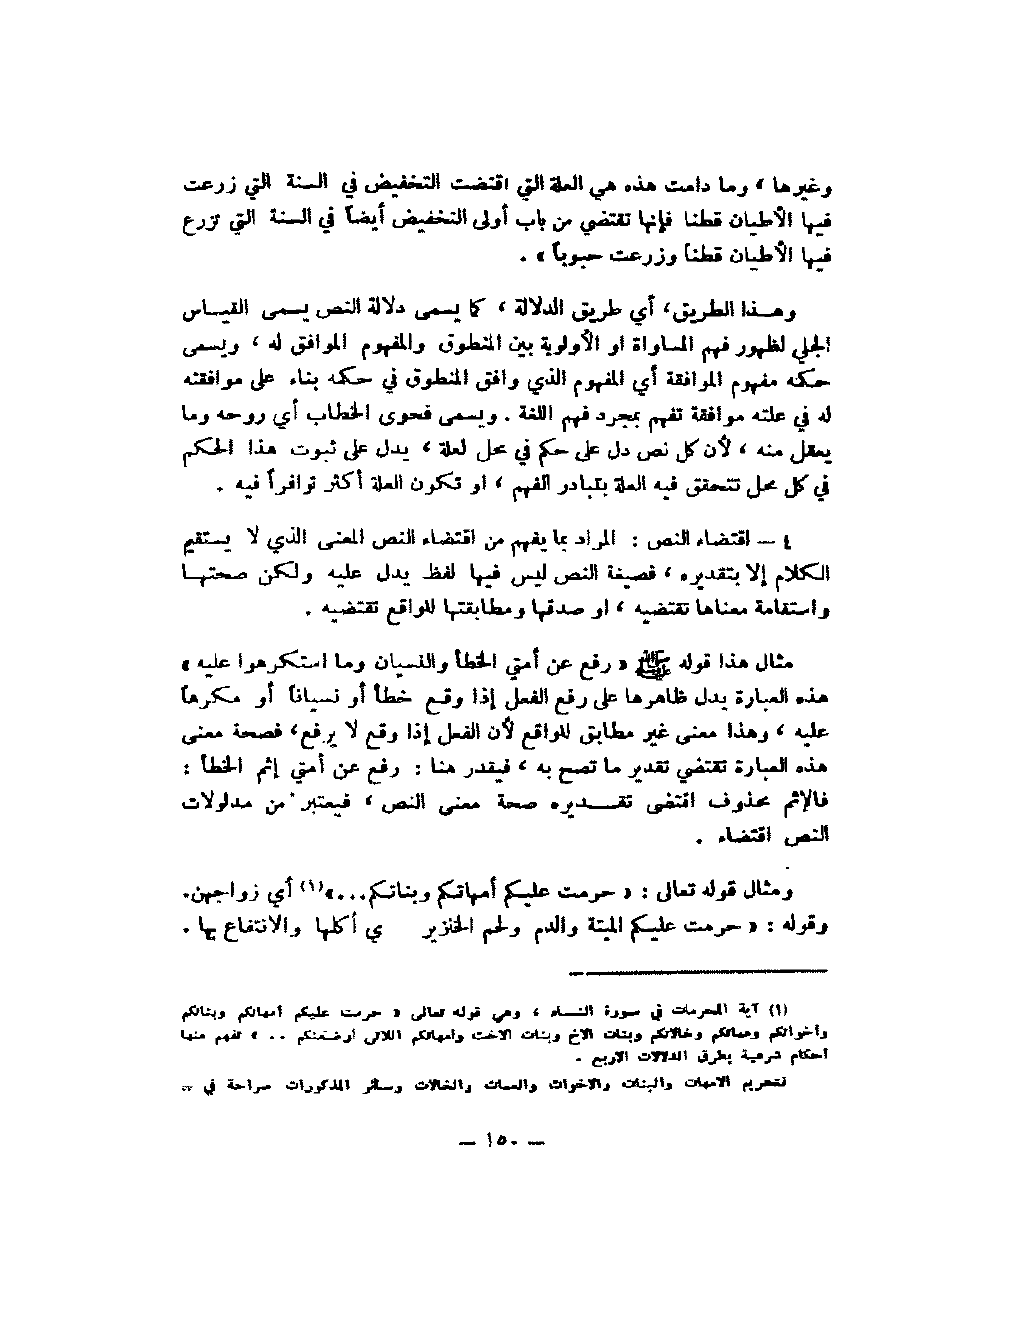 وغيرها ، وما دامت هذه هي العلة التي اقتضت التخفيض في السنة التي زرعت
فيها الأطيان قطنا فإنها تقتضي من باب أولى التخفيض أيضاً في السنة التي تزرع
فيها الأطيان قطناً وزرعت حبوباً » .
وهــذا الطريق، أي طريق الدلالة ، كما يسمى دلالة النص يسمى القيــاس
الجلي لظهور فهم المساواة او الأولوية بين المنطوق والمفهوم الموافق له ، ويسمى
حكمه مفهوم الموافقة أي المفهوم الذي وافق المنطوق في حكمه بناء على موافقته
له في علته موافقة تفهم بمجرد فهم اللغة . ويسمى فحوى الخطاب أي روحه وما
يعقل منه ، لأن كل نص دل على حكم في محل لعلة ، يدل على ثبوت هذا الحكم
في كل محل تتحقق فيه العلة بتبادر الفهم ، او تكون العلة أكثر توافراً فيه .
٤ – اقتضاء النص : المراد بما يفهم من اقتضاء النص المعنى الذي لا يستقيم
الكلام إلا بتقديره ، فصيغة النص ليس فيها لفظ يدل عليه ولكن صحتهــا
واستقامة معناها تقتضيه ، او صدقها ومطابقتها للواقع تقتضيه .
مثال هذا قوله ﷺ « رفع عن أمتي الخطأ والنسيان وما استكرهوا عليه »
هذه العبارة يدل ظاهرها على رفع الفعل إذا وقع خطأ أو نسياناً أو مكرهاً
عليه ، وهذا معنى غير مطابق للواقع لأن الفعل إذا وقع لا يرفع، فصحة معنى
هذه العبارة تقتضي تقدير ما تصح به ، فيقدر هنا : رفع عن أمتي إثم الخطأ :
فالإثم محذوف اقتضى تقــديره صحة معنى النص ، فيعتبر من مدلولات
النص اقتضاء .
ومثال قوله تعالى : « حرمت عليكم أمهاتكم وبناتكم...»(١) أي زواجهن.
وقوله : « حرمت عليكم الميتة والدم ولحم الخنزير ي أكلها والانتفاع بها .
(١) آية المحرمات في سورة النساء ، وهي قوله تعالى « حرمت عليكم أمهاتكم وبناتكم
وأخواتكم وعماتكم وخالاتكم وبنات الاخ وبنات الاخت وأمهاتكم اللاتي أرضعنكم .. » تفهم منها
أحكام شرعية بطرق الدلالات الاربع .
فتحريم الامهات والبنات والاخوات والعمات والخالات وسائر المذكورات صراحة في =
– ١٥٠ –